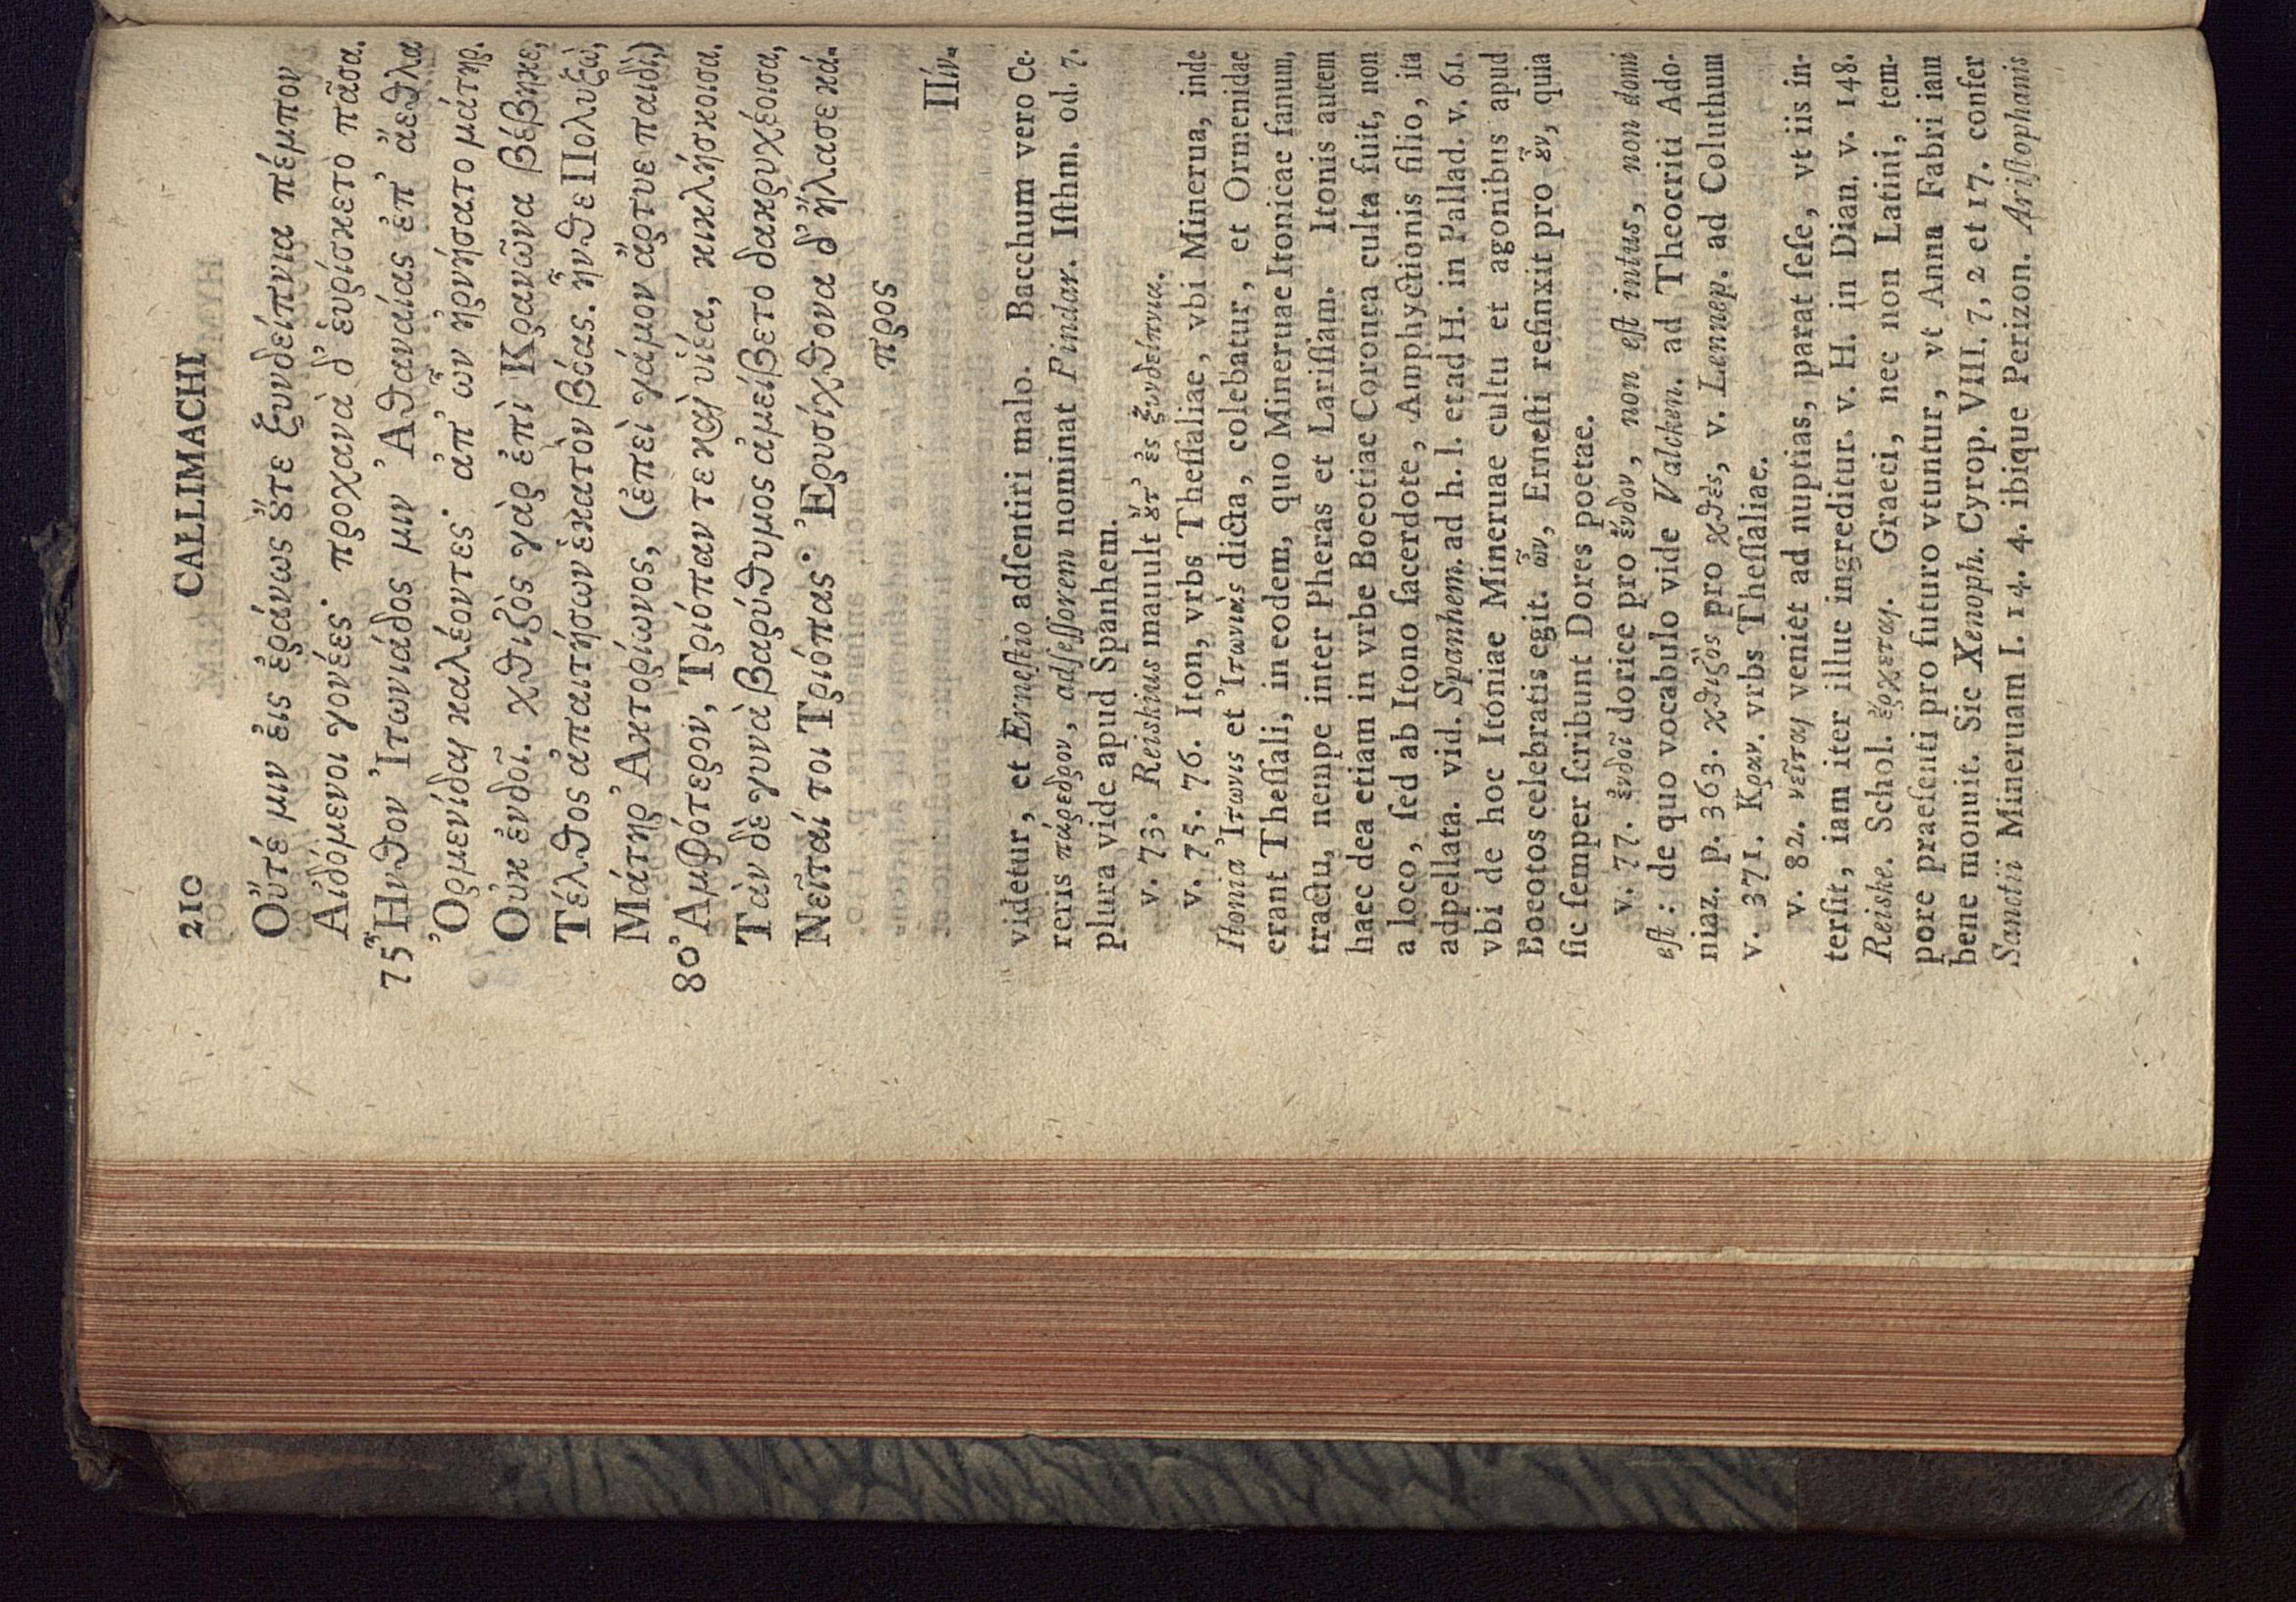 210 CALLIMACHI
Οὔτέ μιν ἐις ἐράνως ȣ̓́τε ξυνδείπνια πέμπον
Αἰδόμενοι γονέες· προχανὰ δ' ἑυρίσκετο πᾶσα.
75 Ἦνθον Ἰτωνιάδος μιν Ἀθαναίας ἐπ' ἄεθλα
Ὀρμενίδαι καλέοντες· ἀπ' ὦν ἠρνήσατο μάτηρ.
Οὐκ ἐνδοῖ. χθιζὸς γὰρ ἐπὶ Κρανῶνα βέβηκε,
Τέλθος ἀπαιτήσων ἑκατὸν βόας. ἦνθε Πολυξὼ,
Μάτηρ Ἀκτορίωνος, (ἐπεὶ γάμον ἄρτυε παιδὶ,)
80 Ἀμφότερον, Τριόπαν τε καὶ υἱέα, κικλήσκοισα.
Τὰν δὲ γυνὰ βαρύθυμος ἀμείβετο δακρυχέοισα,
Νεῖταί τοι Τριόπας· Ἐρυσίχθονα δ' ἤλασε κά-
προς
Πίν-
videtur, et Erneſtio adſentiri malo. Bacchum vero Ce-
reris πάρεδρον, adſeſſorem nominat Pindar. Iſthm. od. 7.
plura vide apud Spanhem.
v. 73. Reiskius mauult ȣ̓́τ' ἐς ξυνδείπνια.
v. 75. 76. Iton, vrbs Theſſaliae, vbi Minerua, inde
Itonia Ἴτωνις et Ἰτωνιὰς dicta, colebatur, et Ormenidae
erant Theſſali, in eodem, quo Mineruae Itonicae fanum,
tractu, nempe inter Pheras et Lariſſam. Itonis autem
haec dea etiam in vrbe Boeotiae Coronea culta fuit, non
a loco, ſed ab Itono ſacerdote, Amphyctionis filio, ita
adpellata. vid. Spanhem. ad h. l. et ad H. in Pallad. v. 61.
vbi de hoc Itoniae Mineruae cultu et agonibus apud
Boeotos celebratis egit. ὦν, Erneſti refinxit pro ȣ̓͂ν, quia
ſic ſemper ſcribunt Dores poetae.
v. 77. ἐνδοῖ dorice pro ἔνδον, non eſt intus, non domi
eſt: de quo vocabulo vide Valcken. ad Theocriti Ado-
niaz. p. 363. χθιζὸς pro χθὲς, v. Lennep. ad Coluthum
v. 371. Κραν. vrbs Theſſaliae.
v. 82. νεῖται veniet ad nuptias, parat ſeſe, vt iis in-
terſit, iam iter illuc ingreditur. v. H. in Dian. v. 148.
Reiske. Schol. ἔρχεται. Graeci, nec non Latini, tem-
pore praeſenti pro futuro vtuntur, vt Anna Fabri iam
bene monuit. Sic Xenoph. Cyrop. VIII. 7, 2 et 17. confer
Sanctii Mineruam I. 14. 4. ibique Perizon. Ariſtophanis